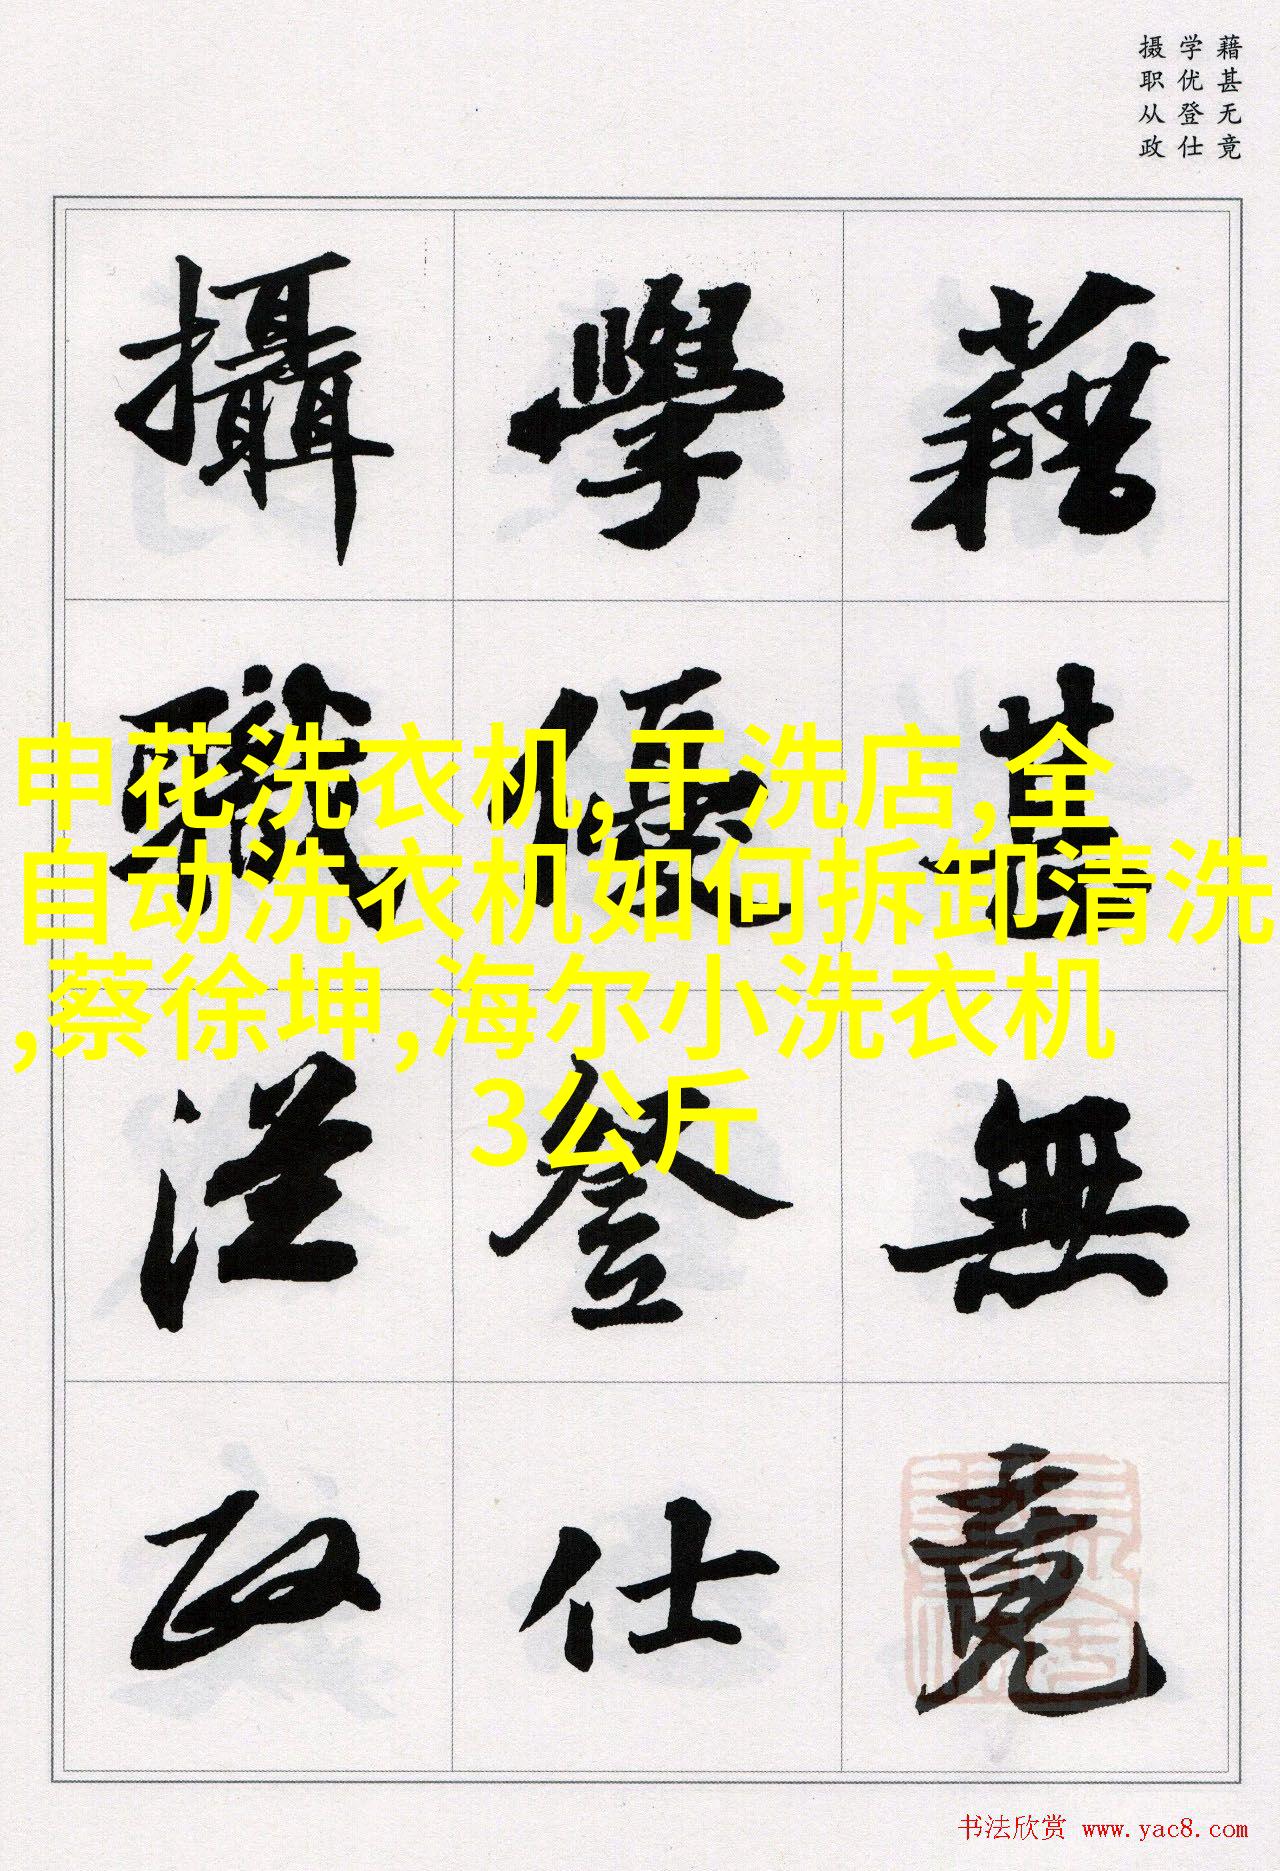 藉甚无竟
学优登仕
摄职从政
藉甚無竟
學優登仕
攝職從政
申花洗衣机,干洗店,全
自动洗衣机如何拆卸清洗
,蔡徐坤,海尔小洗衣机
3公斤
书法欣赏 www.yac8.com